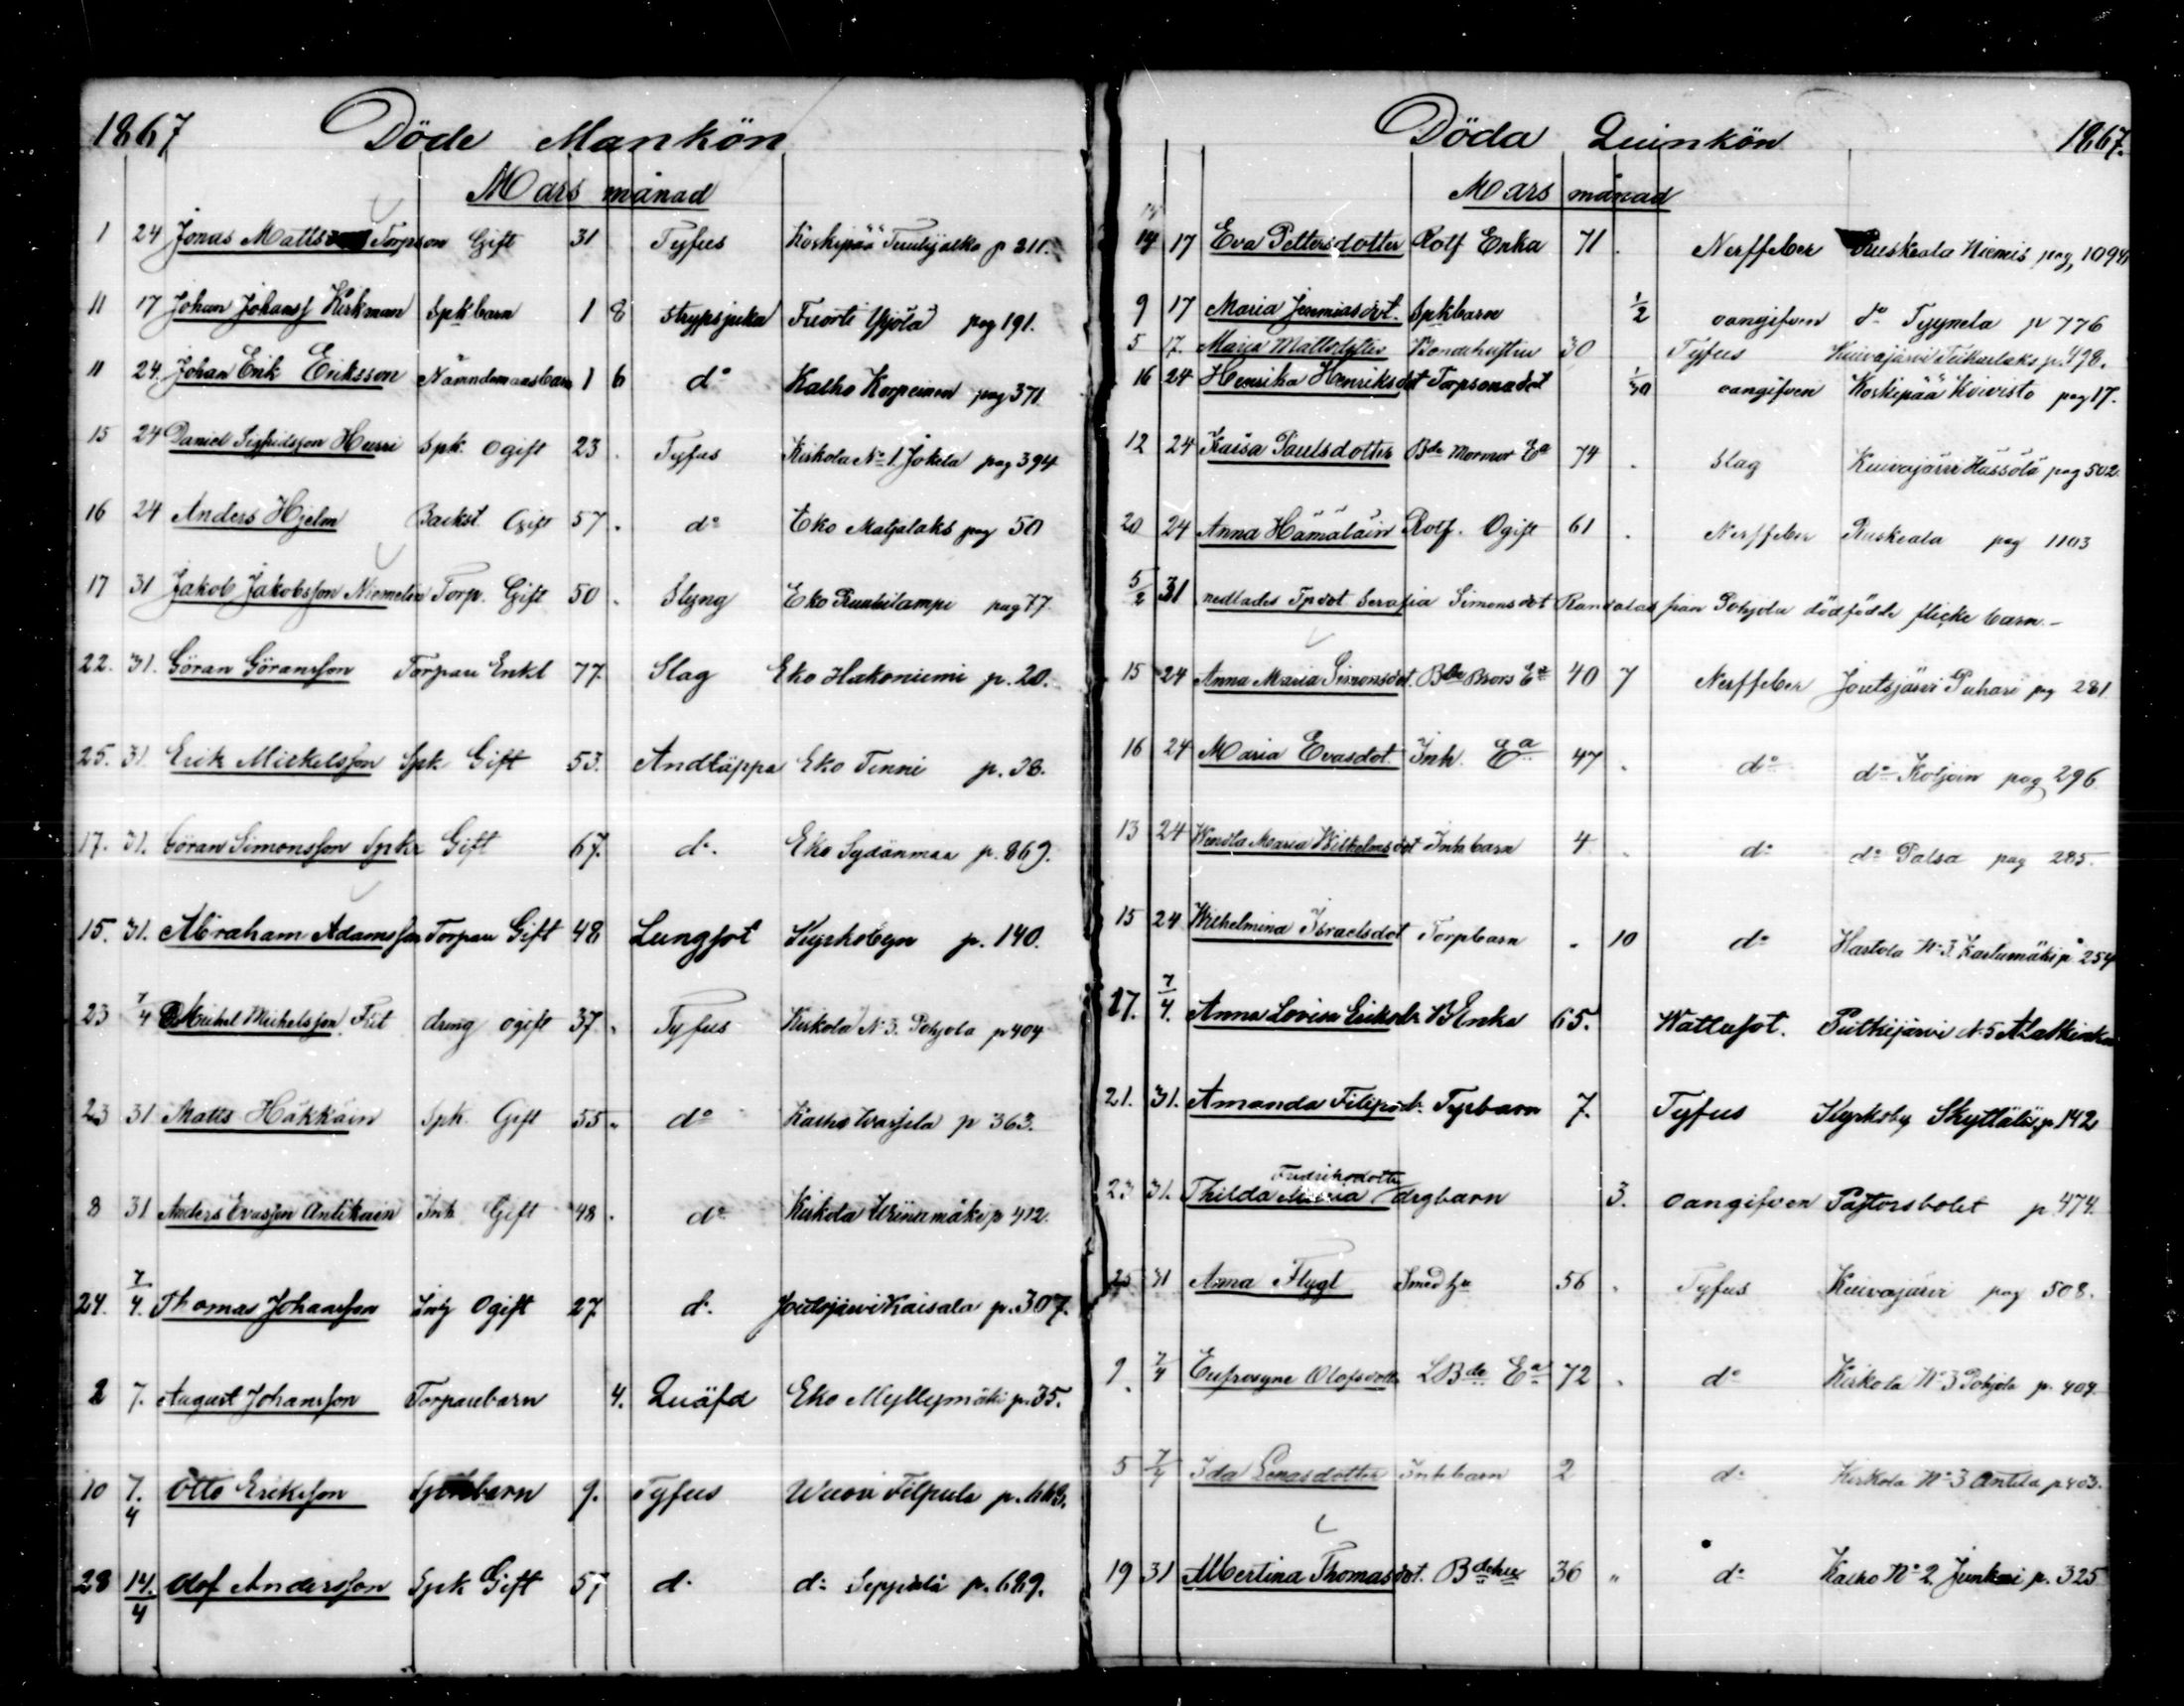 1867 Döde Mankön
Mars månad
1 24 Jonas Matts Torpson Gift 31 Tyfus Koskipää Tuulijalka p 211.
11 17 Johan Johanss Kirkman Spkbarn 1 8 Strypsjuka Tuorti Yjölä pag 191.
11 24. Johan Erik Eriksson Nämndemansbarn 1 6 do Kalho Korpeinen pag 371
15 24 Daniel Sigfridsson Hurri Spk. ogift 23 . Tyfus Kirkola No 1 Jokela pag 394
16 24 Anders Hjelm Backst. Gift 57 . do Eko Matjulaks pag 50
17 31 Jakob Jakobsson Niemelin Torp. Gift 50 . Styng Eko Ruuhilampi pag 77.
22. 31. Göran Göransson Torpare Enkl 77. Slag Eko Hakoniemi p. 20.
25. 31. Erik Mickelsson Spk Gift 53. Andtäppa Eko Tenni p. 36.
17. 31. Göran Simonsson Spkr Gift 67. do. Eko Sydänmaa p. 869.
15. 31. Abraham Adamsson Torpare Gift 48 Lungsot Kyrkobyn p. 140.
23 7/4 Michel Michelsson Fiit dräng ogift 37. . Tyfus Kirkola N 3. Pohjola p 404
23 31 Matts Häkkäin Spk. Gift 55 „ do Kalho p 363.
8 31 Anders Evasson Antikain Inh Gift 48 . do Kirkola p 412.
24. 7/4. Thomas Johansson Inh Ogift 27 do. Joutsjärvi Kaisala p. 307.
2 7. August Johansson Torparebarn 4. Quäfd Eko Myllymäki p. 35.
10 7./4 Otto Eriksson Spkbarn 9. Tyfus Wuori Filpula p. 663.
28 14./4 Olof Andersson Spk Gift 57 do. do Seppälä p. 689.
Döda Quinkön 1867.
Mars månad
14 17 Eva Pettersdotter Rotf Enka 71 . Nerffeber Ruskeala Niemis pag, 1094
9 17 Maria Jeremiasdot. Spkbarn 1/2 oangifven do Tyynelä p 776
5 17. Maria Mattsdotter Bondehustru 30 Tyfus Kuivajärvi p. 498.
16 24 Henrika Henriksdot Torpsonsdot oangifven Koskipää Koivisto pag 17.
12 24 Kaisa Paulsdotter Bde Mormor Ea 74 . Slag Kuivajärvi Hussola pag 502
20 24 Anna Hämäläin Rotf. Ogift 61 . Nerffeber Ruskeala pag 1103
5/2 31 nedlades Tpdot Serafia Simonsdot Randalas från Pohjola dödfödde flicke barn.-
15 24 Anna Maria Simonsdot. Bde Brors Ea 40 7 Nerffeber Joutsjärvi Puhari pag 281
16 24 Maria Evasdot. Inh. Ea 47 . do do Koljoin pag 296
13 24 Wendla Maria Wilhelmsdot Inh.barn 4 . do do Palsa pag 285.
15 24 Wilhelmina Israelsdot Torpbarn . 10 do Hartola No 3. Kaslumäki p 254
17. 7/4. Anna Lovisa Eriksdr. B Enka 65. Wattusot. Putkijärvi N. 5
21. 31. Amanda Filipsd. Tpbarn 7. Tyfus Kyrkoby Skyttälä p. 142
Fredriksdotter
23 31. Thilda Maria drgbarn 3. oangifven Pastorsbolet p. 474.
25 31 Anna Flygt Smed hu 56 . Tyfus Kuivajärvi pag 508.
9. 7/4 Eufrosyne Olofsdott LBde Ea 72 . do Kirkola No 3 Pohjola p. 404.
5 7/4 Ida Lenasdotter Inhbarn 2 do Kirkola No 3 Antila p 403.
19 31 Albertina Thomasdot. Bdehu 36 „ do Kalho No 2. Junkari p. 325